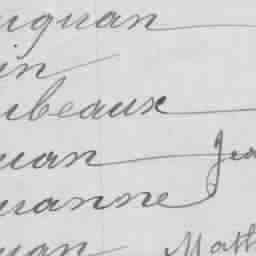 uguan
in
ubeaux
uan Jea
uanne
uan Math